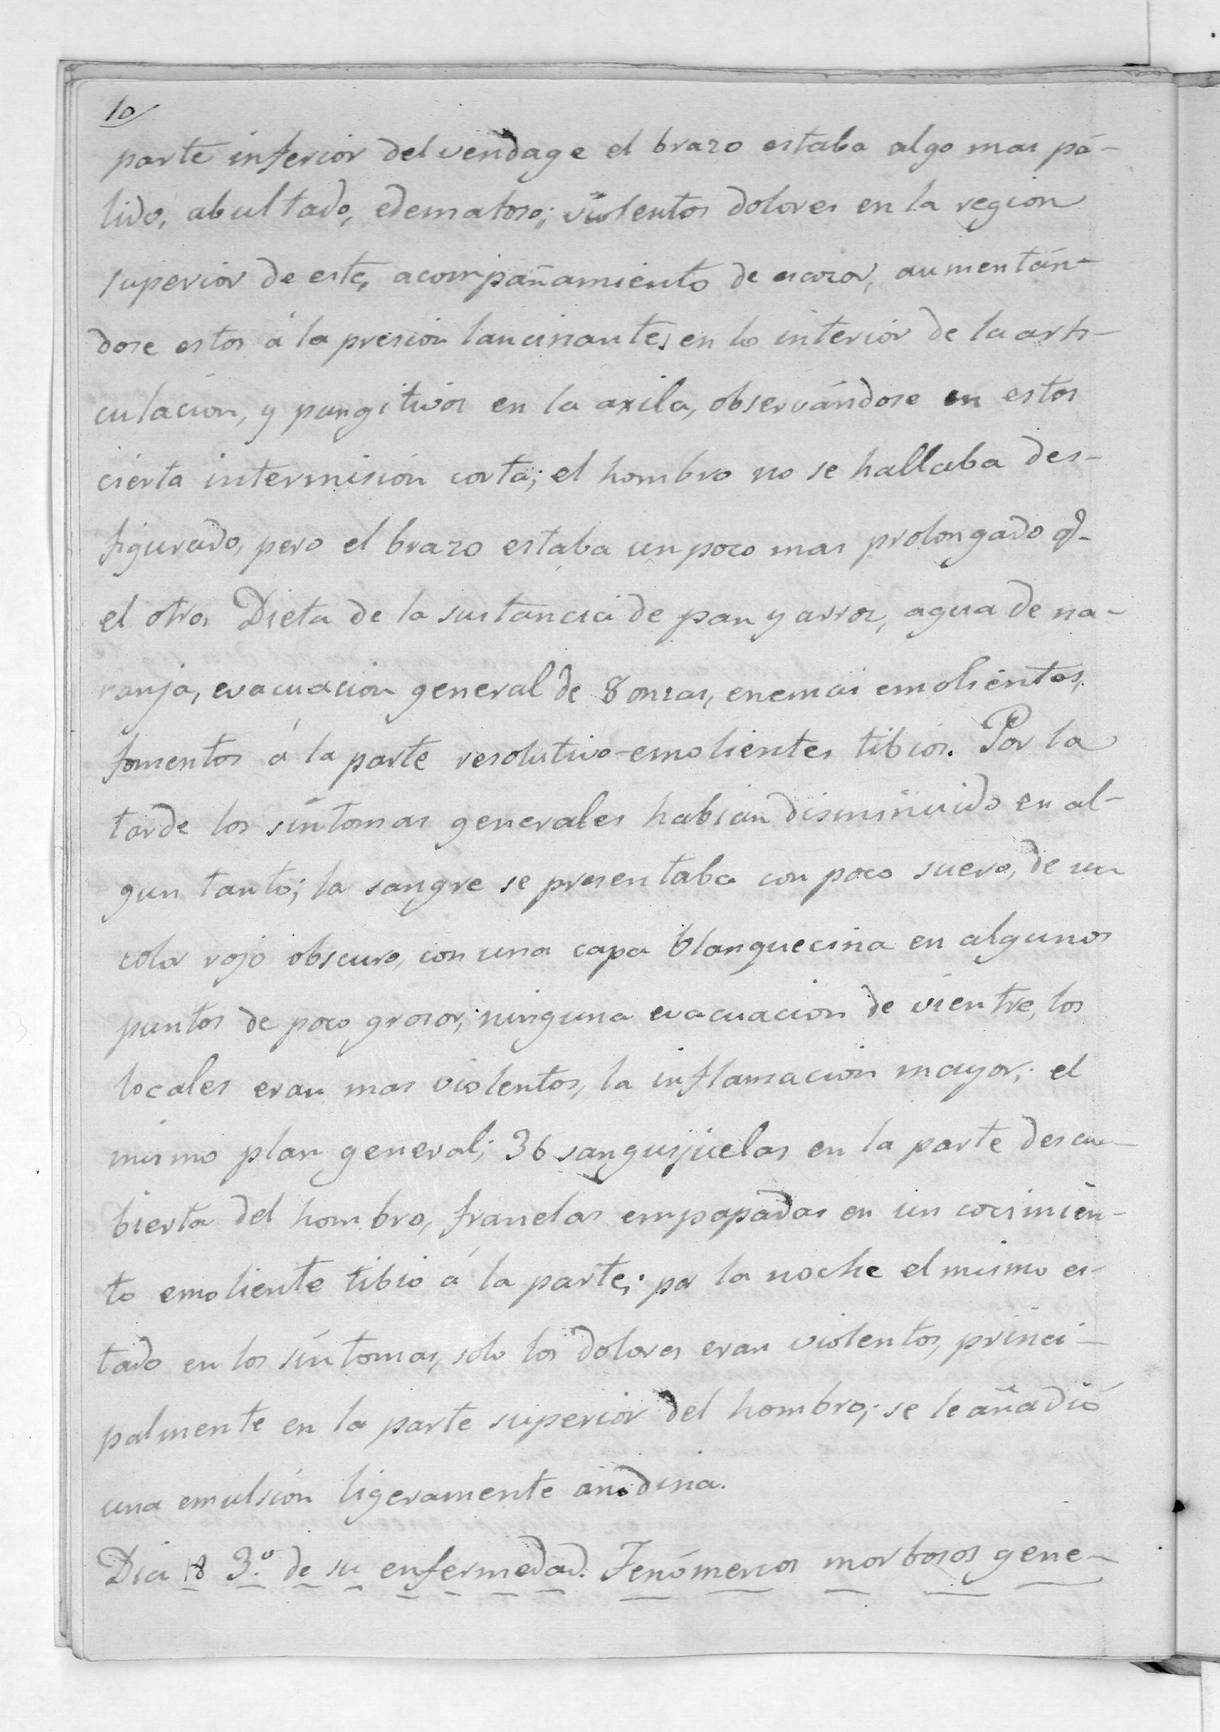 10
parte inferior del vendage el brazo estaba algo mas pá-
lido, abultado, edematoso; violentos dolores en la region
superior de este, acompañamiento de escozor, aumentán-
dose estos á la presion lancinantes en lo interior de la arti-
culacion, y pungitivos en la axila, observándose en estos
cierta intermisión corta; el hombro no se hallaba des-
figurado, pero el brazo estaba un poco mas prolongado q.
el otro. Dieta de la sustancia de pan y arroz, agua de na-
ranja, evacuacion general de 8 onzas, enemas emolientes,
fomentos á la parte resolutivo-emolientes tibios. Por la
tarde los síntomas generales habian disminuido en al-
gun tanto; la sangre se presentaba con poco suero, de un
color rojo obscuro, con una capa blanquecina en algunos
puntos de poco grosor; ninguna evacuacion de vientre, los
locales eran mas violentos, la inflamacion mayor; el
mismo plan general; 36 sanguijuelas en la parte descu-
bierta del hombro, franelas empapadas en un cocimien-
to emoliente tibio á la parte; por la noche el mismo es-
tado en los síntomas, solo los dolores eran violentos, princi-
palmente en la parte superior del hombro; se le añadió
una emulsión ligeramente anodina.
Dia 18 3.º de su enfermedad. Fenómenos morbosos gene-